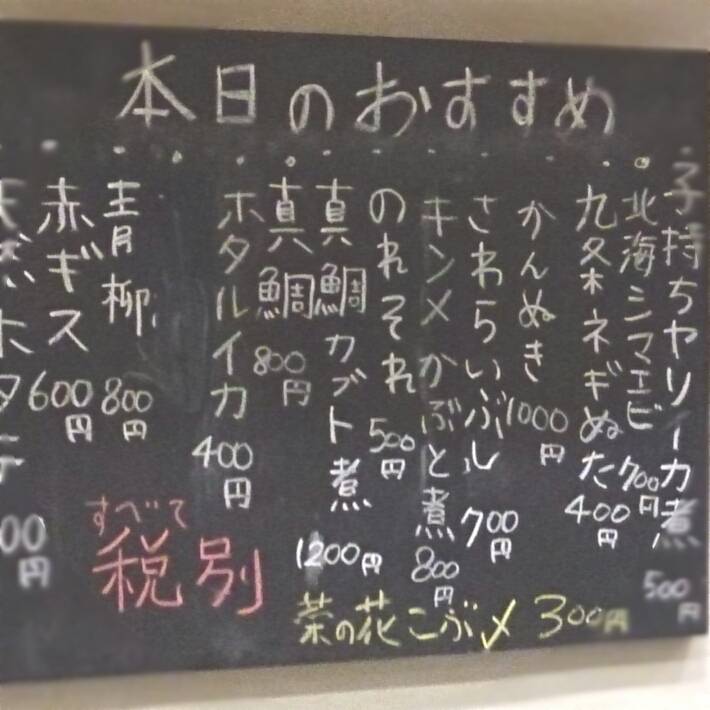 本日のおすすめ
子持ちヤリイカ煮 500円
北海シマエビ 700円
九条ネギぬた 400円
かんぬき 1000円
さわらいぶし 700円
キンメかぶと煮 800円
のれそれ 500円
真鯛カブト煮 1200円
真鯛 800円
ホタルイカ 400円
青柳 800円
赤ギス 600円
すべて
税別
菜の花こぶ〆 300円